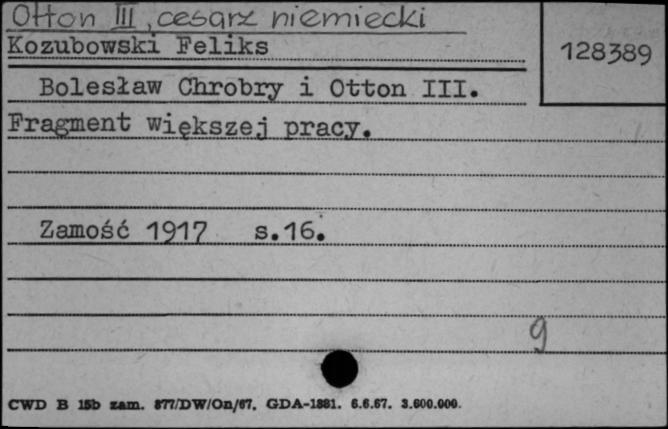 Otton III, cesarz niemiecki
128389
Kozubowski Feliks
Bolesław Chrobry i Otton III.
Fragment większej pracy.
Zamość 1917 s.16.
9
CWD B 15b zam. 877/DW/On/67. GDA-1881. 6.6.67. 3.600.000.